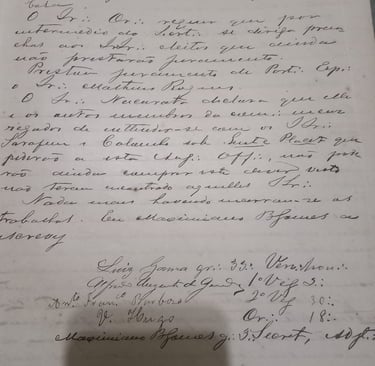 O Ir∴ Or∴ requer que por
intermedio do Secret∴ se dirija pran
chas aos IIr∴ eleitos que ainda
não prestarão juramento.
Prestou juramento de Port∴ Esp∴
o Ir∴ Matheus
O Ir∴ declara que elle
e os outros membros da com∴ encar
regados de entender-se com os IIr∴
Serafim e sob Placet que
pedirão a esta Aug∴ Off∴, não pode
rão ainda cumprir este dever visto
não terem encontrado aquelles IIr∴
Nada mais havendo encerrarão-se os
trabalhos. Eu Maximiano
escrevy
Luiz Gama gr∴ 33∴ Ven∴
Augusto de 1º Vig 3∴
Anto Franco Barboza 2º Vig 30∴
V. Hugo Or∴ 18∴
Maximiano g∴ 3∴ Secret,